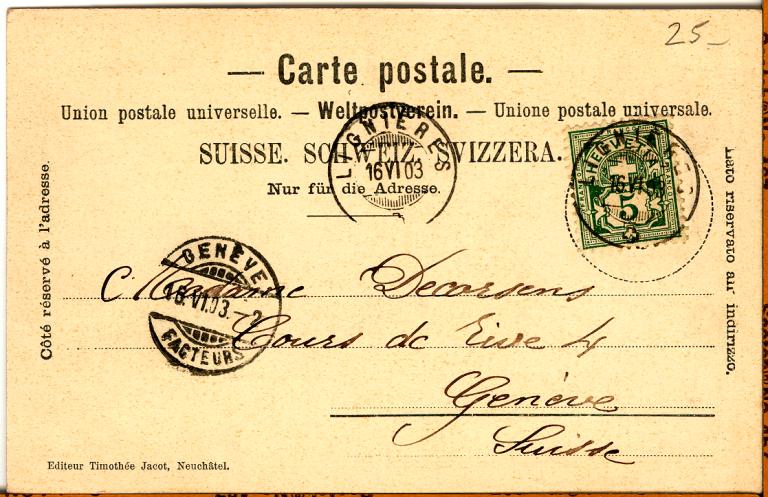 25-
— Carte postale. —
Union postale universelle. — Weltpostverein. — Unione postale universale.
SUISSE. SCHWEIZ. SVIZZERA.
Nur für die Adresse.
LIGNIÈRES
16 VI 03
HELVETIA
5
Côté réservé à l'adresse.
Lato riservato all'indirizzo.
GENÈVE
16.VI.03.-2
FACTEURS
Madame Decorsens
Cours de Rive 4
Genève
Suisse
Editeur Timothée Jacot, Neuchâtel.